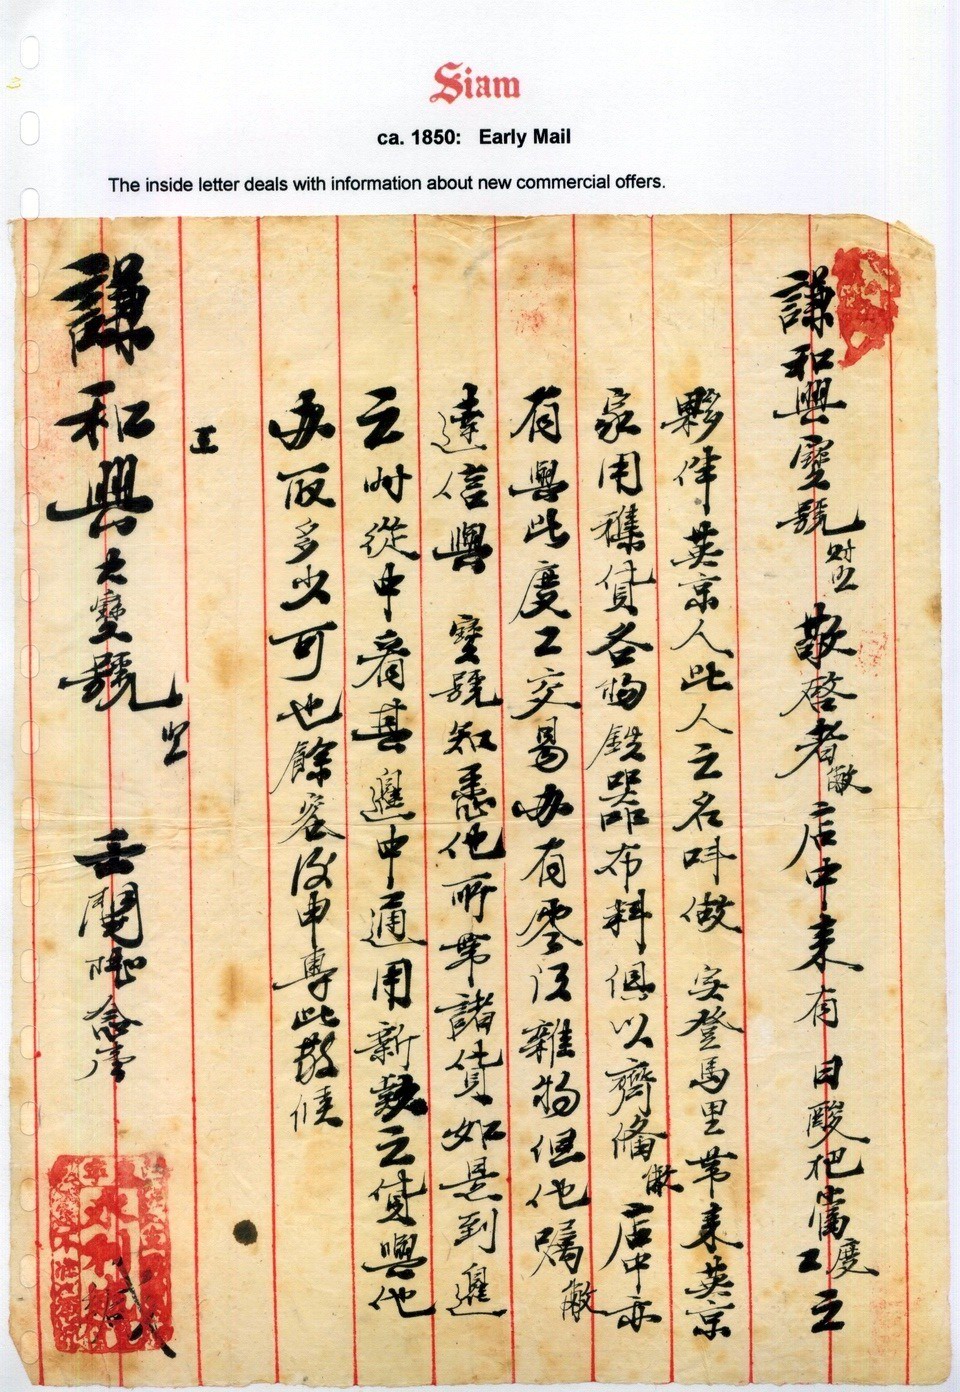 Siam
ca. 1850: Early Mail
The inside letter deals with information about new commercial offers.
謙和興寶號 敬啓者敝店中來有 之
夥伴英京人此人之名呌做 安登馬里帶來英京
家用雜貨各物鉄器布料俱以齊偹敝店中亦
有與此度工交易办有 雜物但他嘱敝
達信與 寶號知悉他所帶諸貨如是到暹
之时從中看其暹中通用新款之貨與他
办取多少可也餘容後申專此敬候
謙和興大寶號 照 壬 
永利